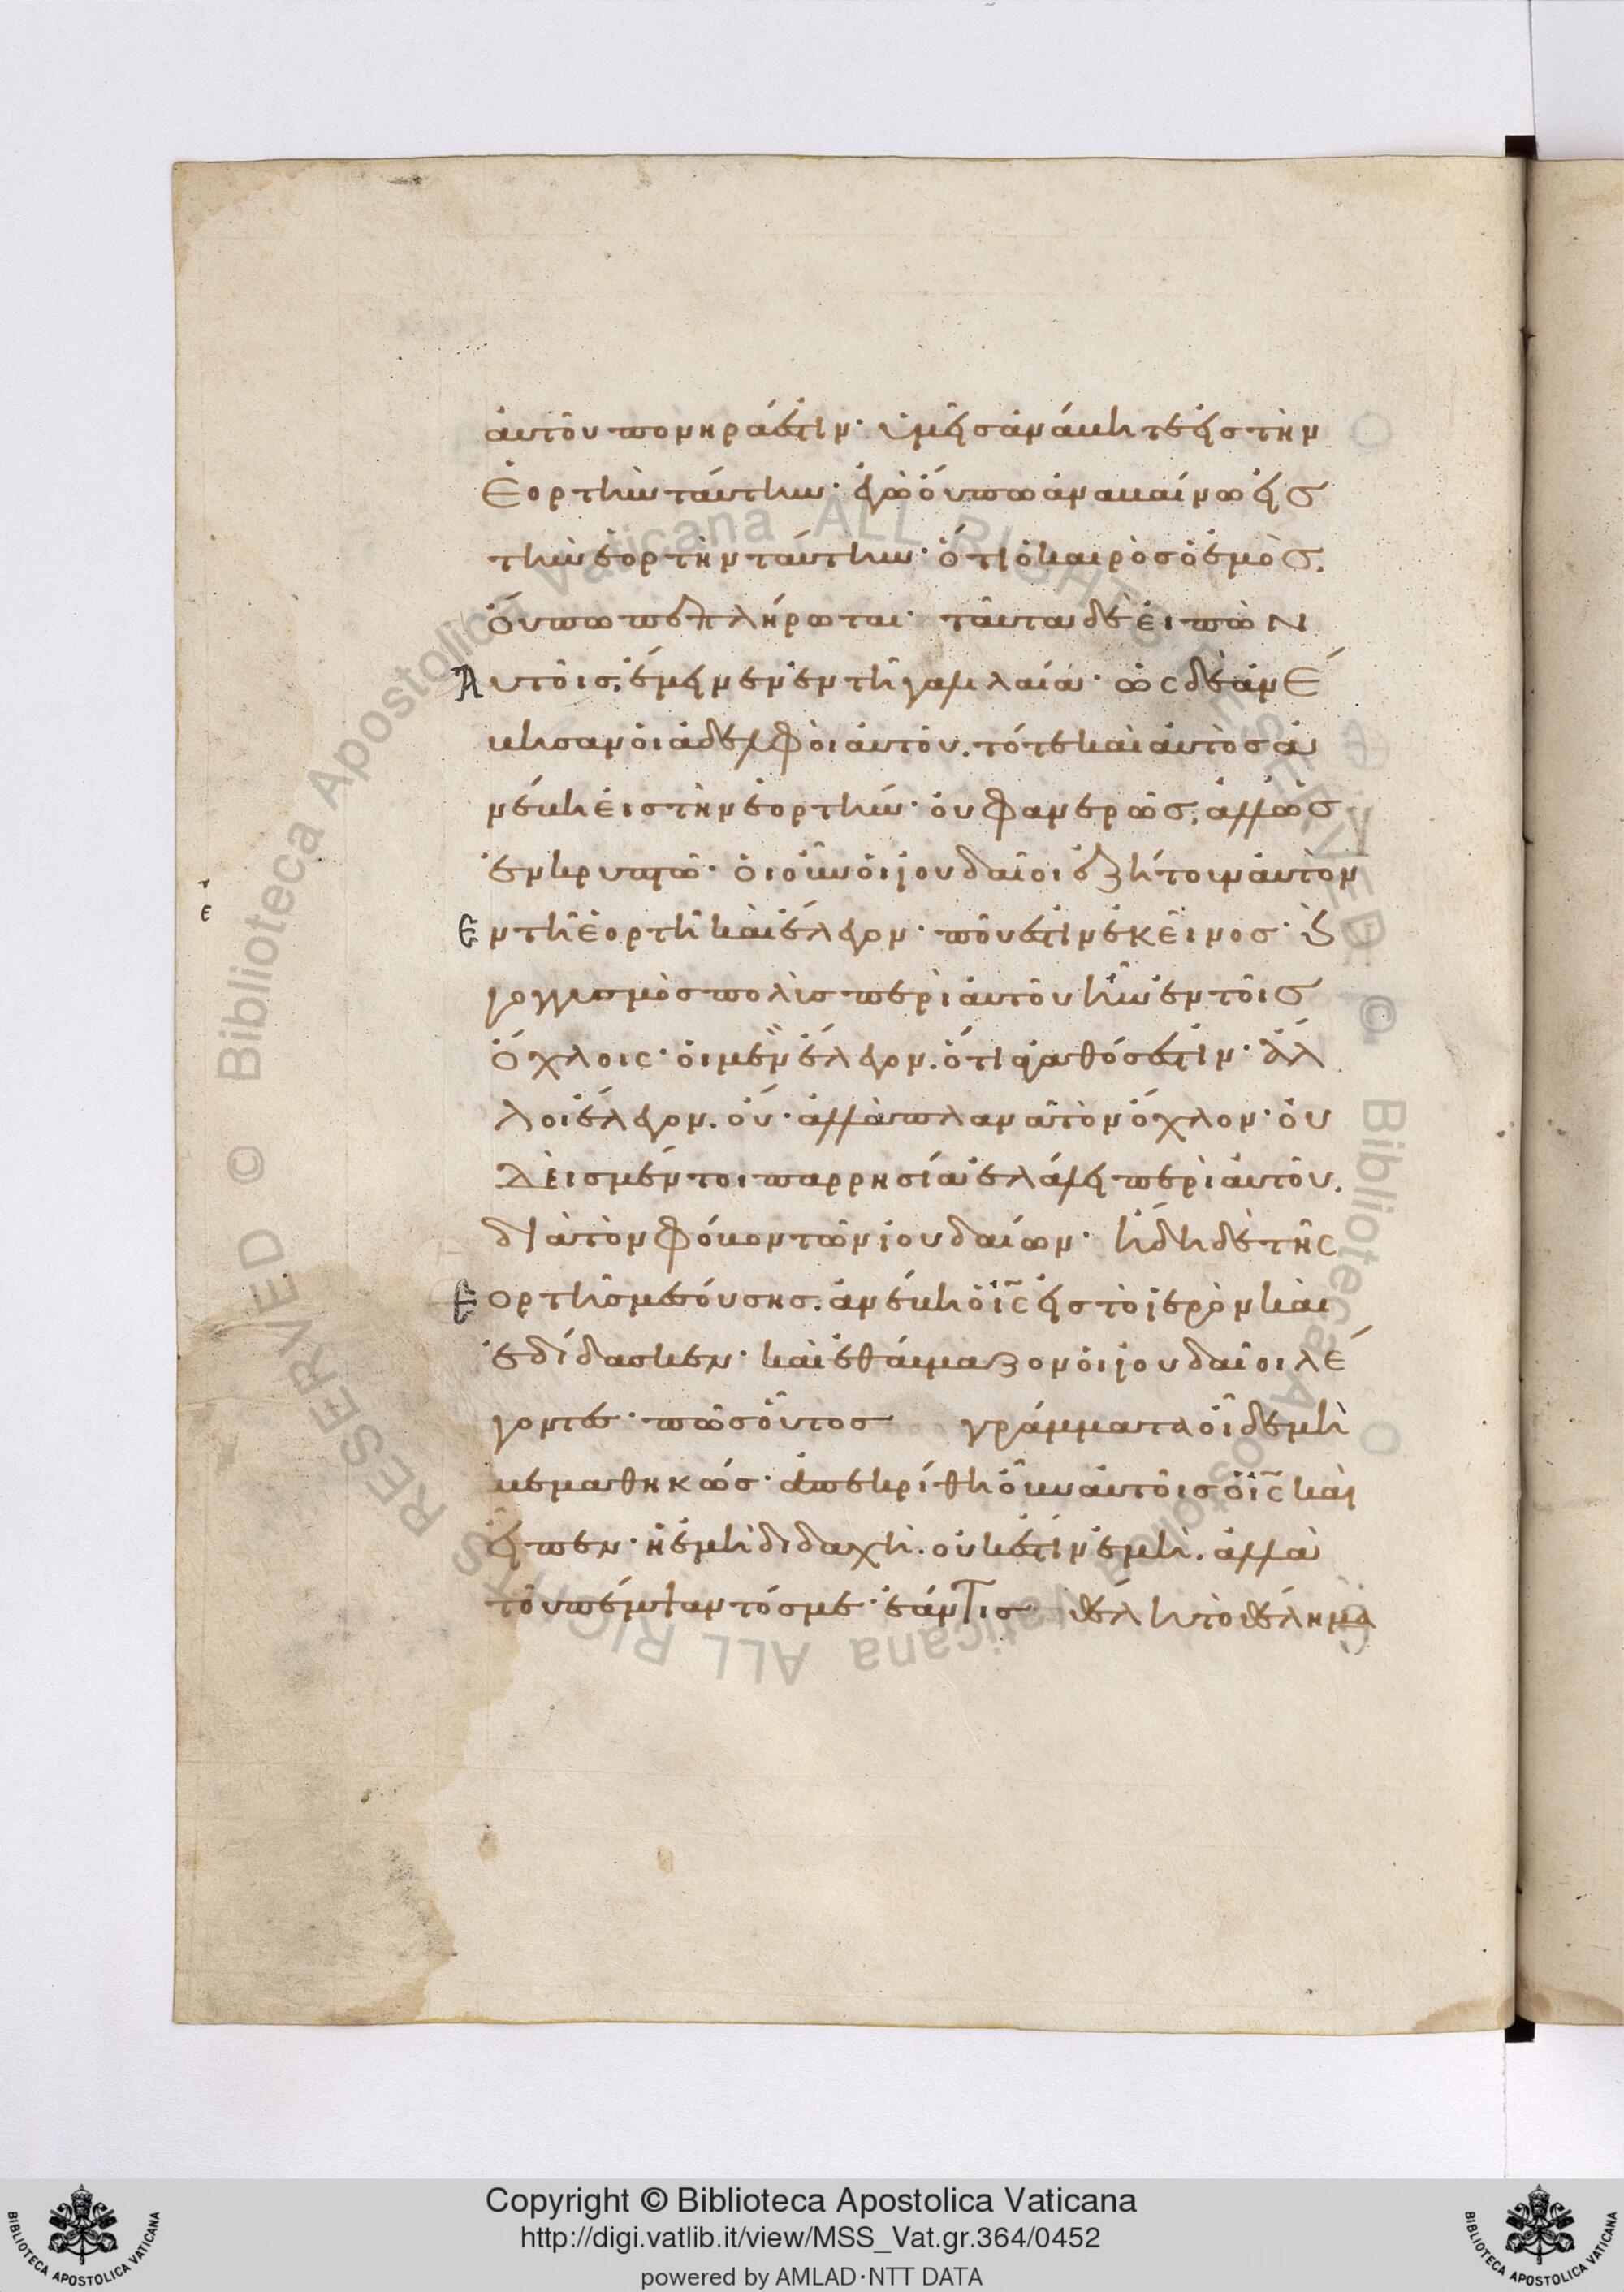 αὐτοῦ πονηρά ἐστιν· ὑμεῖς ἀνάβητε εἰς τὴν
ἑορτὴν ταύτην· ἐγὼ οὔπω ἀναβαίνω εἰς
τὴν ἑορτὴν ταύτην· ὅτι ὁ καιρὸς ὁ ἐμὸς.
οὔπω πεπλήρωται· ταῦτα δὲ εἰπὼν
Αὐτοῖς, ἔμεινεν ἐν τῇ γαλιλαίᾳ· ὡς δὲ ἀνέ
βησαν οἱ ἀδελφοὶ αὐτοῦ. τότε καὶ αὐτὸς ἀ
νέβη εἰς τὴν ἑορτήν· οὐ φανερῶς, ἀλλ' ὡς
ἐν κρυπτῷ· οἱ οὖν ἰουδαῖοι ἐζήτουν αὐτὸν
Ἐν τῇ ἑορτῇ καὶ ἔλεγον· ποῦ ἐστιν ἐκεῖνος· ϗ
γογγυσμὸς πολὺς περὶ αὐτοῦ ἦν ἐν τοῖς
ὄχλοις· οἱ μὲν ἔλεγον. ὅτι ἀγαθός ἐστιν· ἄλ
λοι ἔλεγον. οὔ· ἀλλὰ πλανᾷ τὸν ὄχλον· οὐ
δεὶς μέντοι παρρησίᾳ ἐλάλει περὶ αὐτοῦ.
διὰ τὸν φόβον τῶν ἰουδαίων· ἤδη δὲ τῆς
Ἑορτῆς μεσούσης. ἀνέβη ὁ ἰς εἰς τὸ ἱερὸν καὶ
ἐδίδασκεν· καὶ ἐθαύμαζον οἱ ἰουδαῖοι λέ
γοντες· πῶς οὗτος γράμματα οἶδε μὴ
μεμαθηκώς· ἀπεκρίθη οὖν αὐτοῖς ὁ ἰς καὶ
εἶπεν· ἡ ἐμὴ διδαχὴ. οὐκ ἔστιν ἐμὴ. ἀλλὰ
τοῦ πέμψαντός με· ἐάν τις θέλῃ τὸ θέλημα
Copyright © Biblioteca Apostolica Vaticana
http://digi.vatlib.it/view/MSS_Vat.gr.364/0452
powered by AMLAD·NTT DATA
BIBLIOTECA APOSTOLICA VATICANA
BIBLIOTECA APOSTOLICA VATICANA
© Biblioteca Apostolica Vaticana ALL RIGHTS RESERVED © Biblioteca Apostolica Vaticana ALL RIGHTS RESERVED